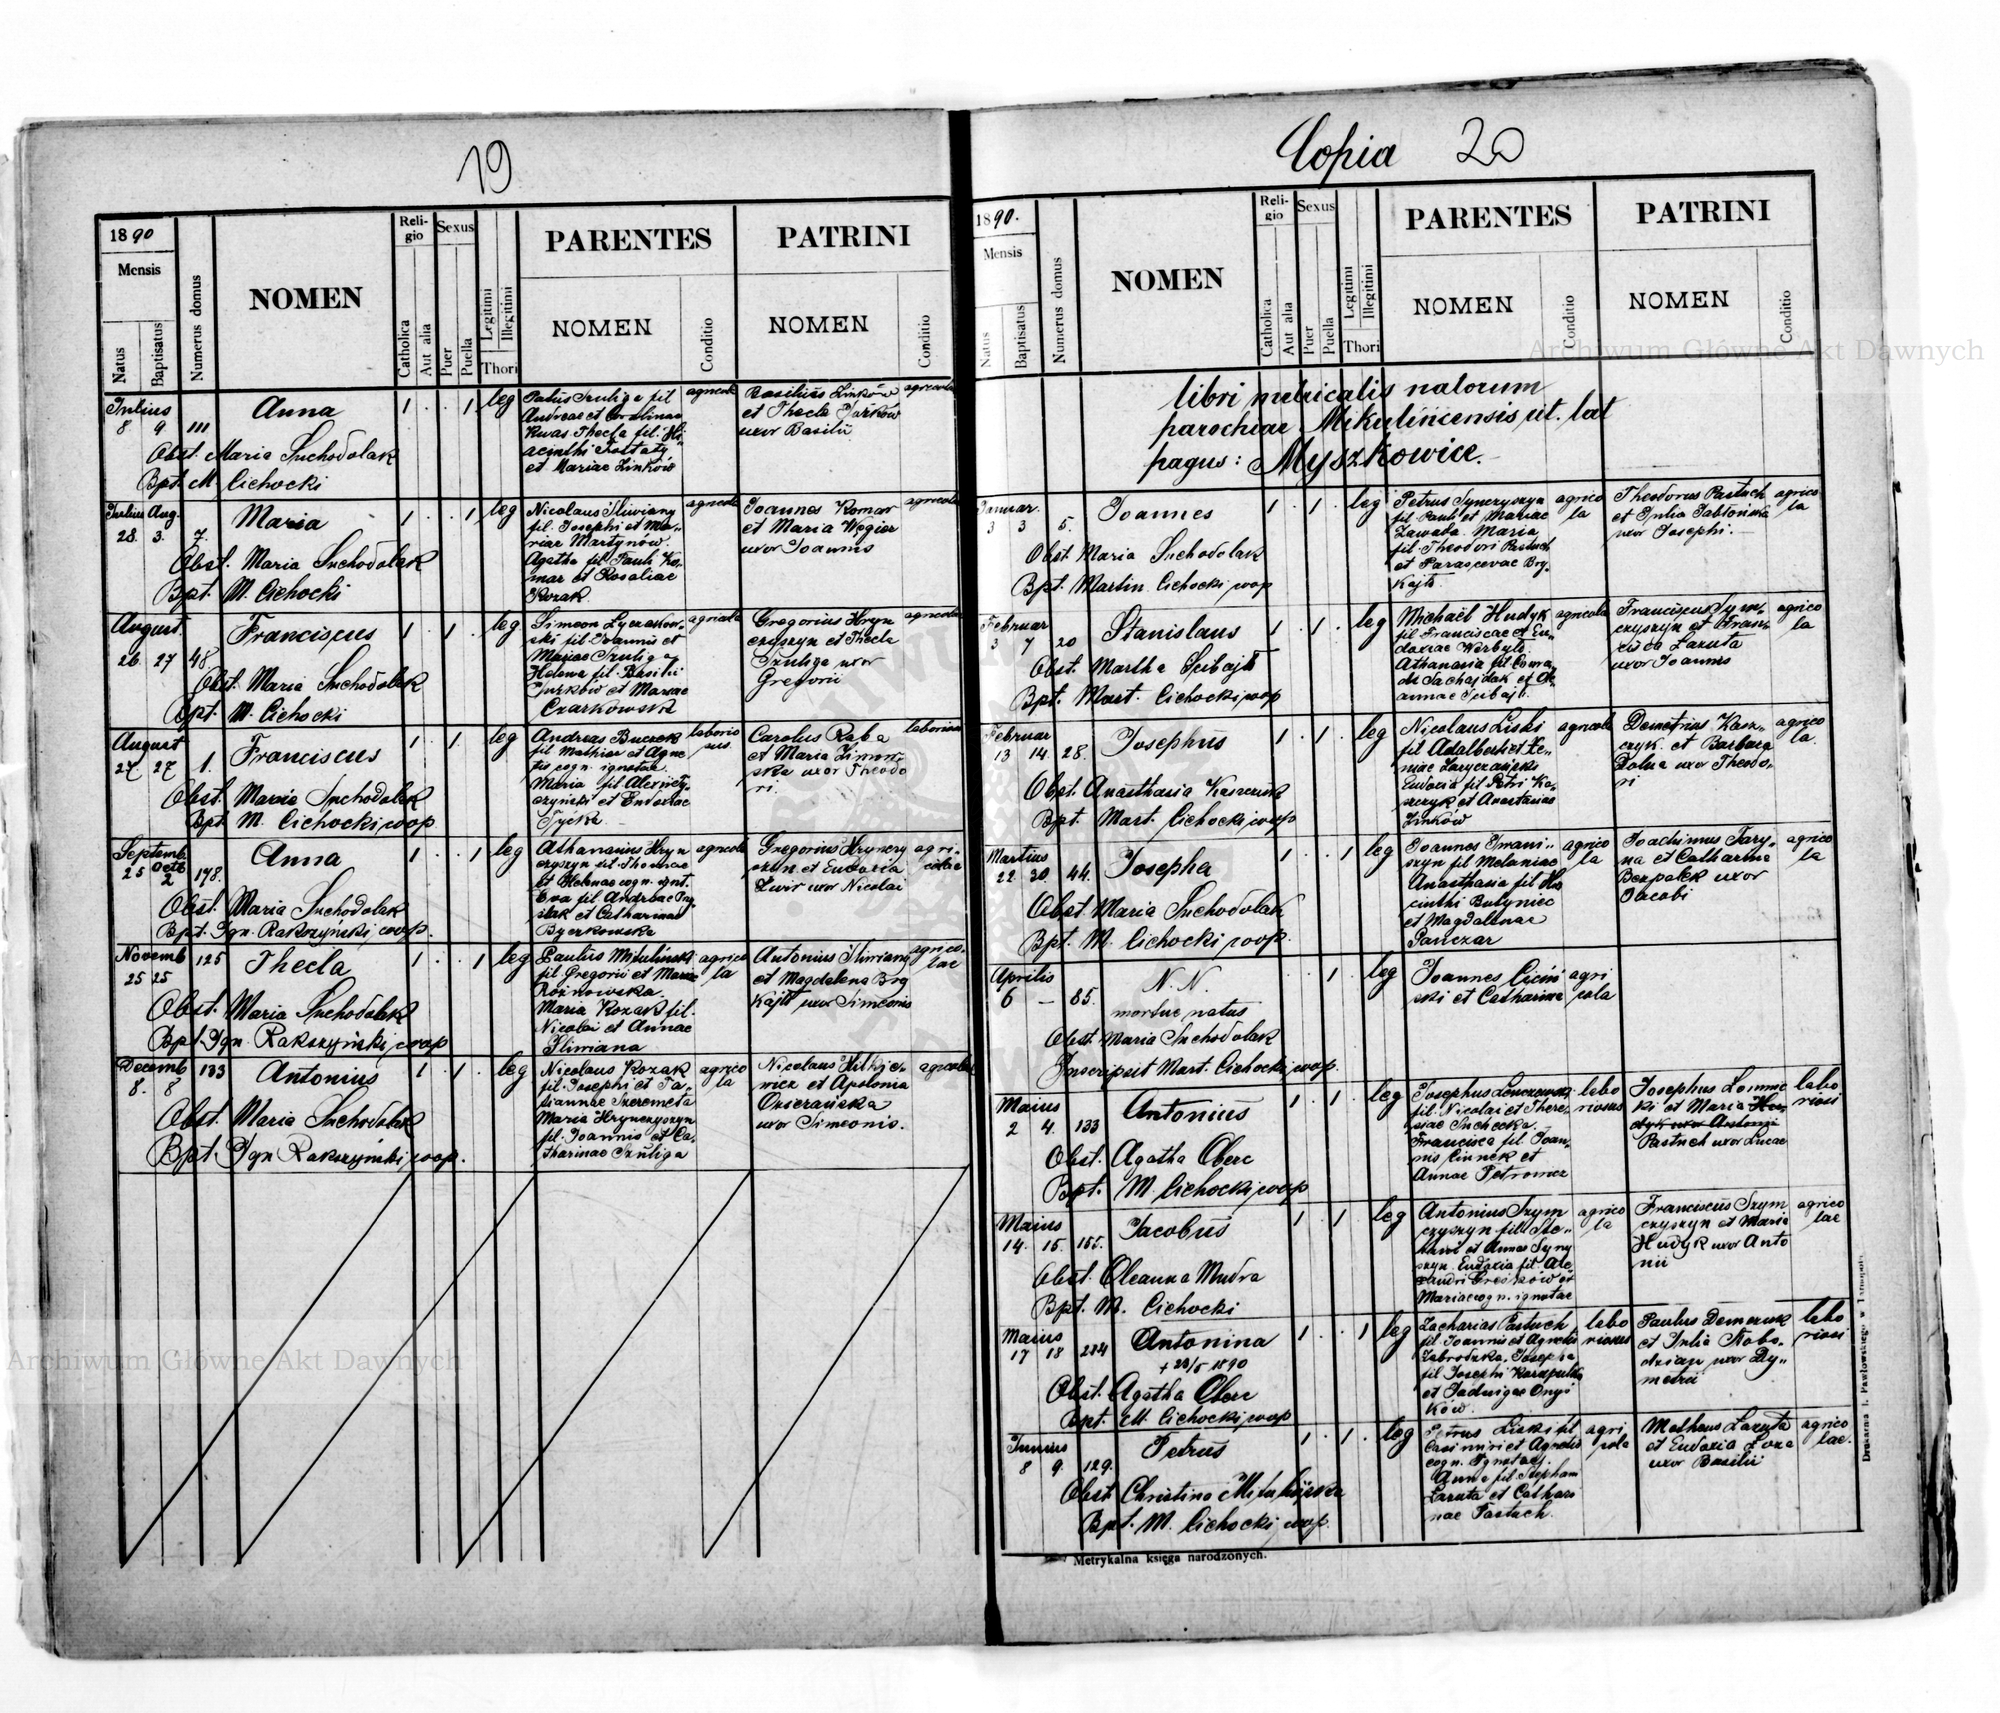 19
1890
Mensis
Natus
Baptisatus
Numerus domus
NOMEN
Religio
Catholica
Aut alia
Sexus
Puer
Puella
Legitimi
Illegitimi
Thori
PARENTES
NOMEN
Conditio
PATRINI
NOMEN
Conditio
Julius
8 9 111 Anna 1 . . 1 leg
Obst. Maria Suchodolak
Bpt. M. Cichocki
Szuliga fil
Andreae et
Thecla fil. Hi-
acinthi
et Mariae Zinków
agricola
Basilius Zinków
et Thecla Jurków
uxor Basilii
agricola
Julius Aug.
28. 3. 7. Maria 1 . . 1 leg
Obst. Maria Suchodolak
Bpt. M. Cichocki
Nicolaus Śliwiany
fil. Josephi et Ma-
riae Martynów.
Agatha fil. Pauli Ko-
mar et Rosaliae
Kozak
agricola
Joannes Komar
et Maria Węgier
uxor Joannis
agricola
August.
26. 27 48 Franciscus 1 . 1 . leg
Obst. Maria Suchodolak
Bpt. M. Cichocki
Simeon Łyczakow-
ski fil. Joannis et
Mariae Szuliga
Helena fil. Basilii
Jurków et Mariae
Czarkowska
agricola
Gregorius Hryn
czyszyn et Thecla
Szuliga uxor
Gregorii
agricola
August
27 27 1. Franciscus 1 . 1 . leg
Obst. Maria Suchodolak
Bpt. M. Cichocki coop
Andreas Buczek
fil Mathiae et Agne
tis cogn. ignotae.
Maria fil Alexii
et Eudoxiae
laborio
sus.
Carolus Raba
et Maria Zimow-
ska uxor Theodo
ri.
Septemb.
25 Octb 2 178. Anna 1 . . 1 leg
Obst. Maria Suchodolak
Bpt. Ign. Rakszyński coop.
Athanasius Hryn
czyszyn fil. Thomae
et Helenae cogn. ignt.
Eva fil Andreae
et Catharinae
agricola
Gregorius Hrynczy
szyn et Eudoxia
Zwir uxor Nicolai
agri-
colae
Novemb
25 25 125 Thecla 1 . . 1 leg
Obst. Maria Suchodolak
Bpt. Ign. Rakszyński coop
Paulus Mikuliński
fil. Gregorii et Mariae
Rożnowska.
Maria Kozak fil.
Nicolai et Annae
Śliwiana
agrico
la
Antonius Śliwiany
et Magdalena Bry
kajło uxor Simeonis
agrico-
lae
Decemb
8. 8 133 Antonius 1 . 1 . leg
Obst. Maria Suchodolak
Bpt. Ign Rakszyński coop.
Nicolaus Kozak
fil. Josephi et Ta-
tiannae Szeremeta
Maria Hrynczyszyn
fil. Joannis et Ca-
tharinae Szuliga
agrico
la
Nicolaus
wicz et Apolonia
Ozierańska
uxor Simeonis.
agricola
Copia 20
1890.
Mensis
Natus
Baptisatus
Numerus domus
NOMEN
Religio
Catholica
Aut alia
Sexus
Puer
Puella
Legitimi
Illegitimi
Thori
PARENTES
NOMEN
Conditio
PATRINI
NOMEN
Conditio
libri metricalis natorum
parochiae Mikulincensis rit. lat
pagus: Myszkowice.
Januar.
3 3 5. Joannes 1 . 1 . leg
Obst. Maria Suchodolak
Bpt. Martin Cichocki coop
Petrus Synczyszyn
fil. Pauli et Mariae
Zawada. Maria
fil. Theodori Pastuch
et Parascevae Bry-
kajło.
agrico
la
Theodorus Pastuch
et Julia Jabłońska
uxor Josephi.
agrico
la
Februar
3 7 20 Stanislaus 1 . 1 . leg
Obst. Martha Subajło
Bpt. Mart. Cichocki coop
Michaël Hudyk
fil. Franciscae et Eu-
doxiae Werbyło.
Athanasia fil. Coma-
annae Subajło.
agricola
Franciscus Szym-
czyszyn et Fran-
Lazuta
uxor Joannis
agrico
la
Februar
13 14 28. Josephus 1 . 1 . leg
Obst. Anasthasia Kaszczuk
Bpt. Mart. Cichocki coop
Nicolaus Liski
fil Adalberti et Xe-
niae
Eudoxia fil Petri Ka-
szczyk et Anastasiae
Zinków
agricola
Demetrius Kasz-
czyk. et Barbara
uxor Theodo-
ri
agrico
la.
Martius
22. 30. 44. Josepha 1 . . 1 leg
Obst. Maria Suchodolak
Bpt. M. Cichocki coop.
Joannes Iwani-
szyn fil Melaniae
Anasthasia fil Hia
cinthi Butyniec
et Magdalenae
Panczar
agrico
la
Joachimus Tary-
na et Catharina
Bezpalek uxor
Jacobi
agrico
la
Aprilis
6 – 85. N. N. 1 . leg
mortue natus
Obst. Maria Suchodolak
Inscripsit Mart. Cichocki coop.
Joannes Ciciń
ski et Catharina
agri
cola
Maius
2 4. 133 Antonius 1 . 1 . leg
Obst. Agatha Oberc
Bpt. M. Cichocki coop
Josephus
fil. Nicolai et There-
siae Suchecka.
Francisca fil. Joan-
nis et
Annae Petrowicz
labo
riosus
Josephus
ki et Maria Hu-
dyk uxor Antonii
Pastuch uxor Lucae
labo
riosi
Maius
14. 15. 155. Jacobus 1 . 1 . leg
Obst. Oleanna Mudra
Bpt. M. Cichocki
Antonius Szym
czyszyn fil.
et Annae
Eudoxia fil Ale-
xandri et
Mariae cogn. ignotae
agrico
la
Franciscus Szym
czyszyn et Maria
Hudyk uxor Anto
nii
agrico
lae
Maius
17 18 234 Antonina 1 . . 1 leg
+ 23/5 1890
Obst. Agatha Oberc
Bpt. M. Cichocki coop
Zacharias Pastuch
fil. Joannis et Agnetis
Zabrodzka. Josepha
fil Josephi
et Jadwigae Onyś
ków.
labo
riosus
Paulus Demczuk
et Julia Nabo-
dzian uxor Dy-
metrii
labo
riosi
Junius
8 9. 129. Petrus 1 . 1 . leg
Obst. Christina Mikulińska
Bpt. M. Cichocki coop.
Petrus Liski fil
Casimiri et Agnetis
cogn. Ignotae.
Anna fil. Stephani
Lazuta et Cathari
nae Pastuch.
agri
cola
Matheus Lazuta
et Eudoxia
uxor Basilii
agrico
lae.
Metrykalna księga narodzonych.
Drukarnia J. Pawłowskiego w Tarnopolu.
Archiwum Główne Akt Dawnych
Archiwum Główne Akt Dawnych